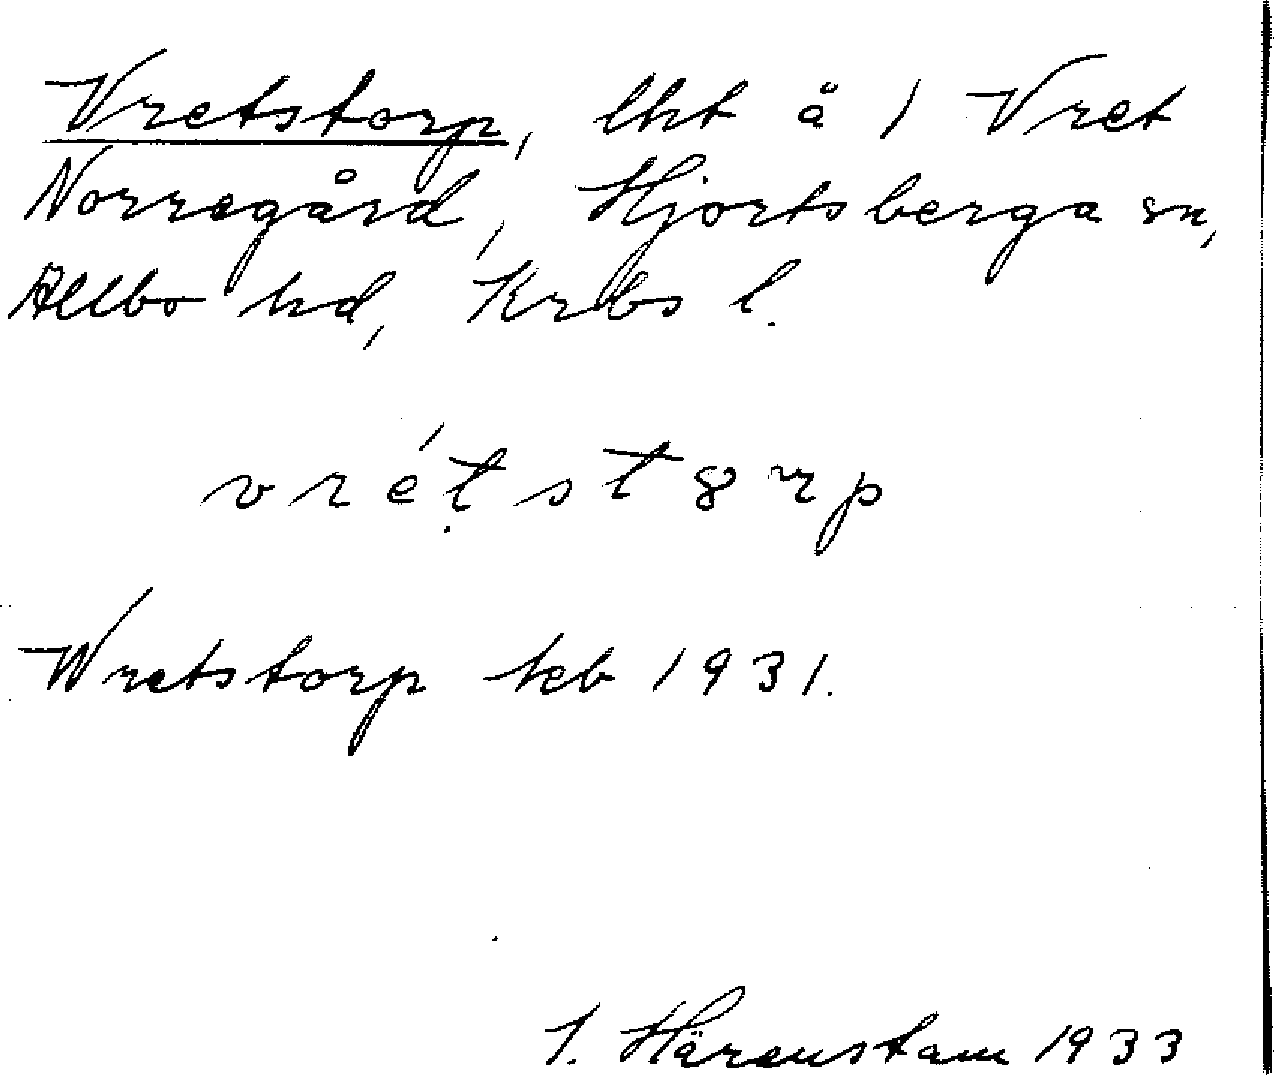 Vretstorp, lht å 1 Vret
Norregård, Hjortsberga sn,
Allbo hd, Krbs l.
vrétst8rp
Wretstorp keb 1931.
I. Härenstam 1933